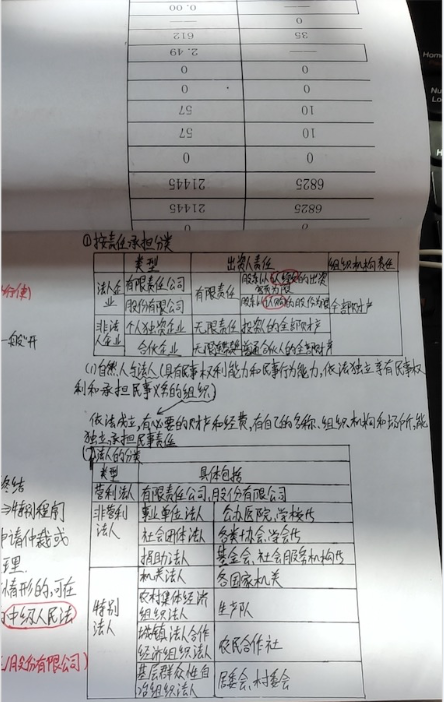 0.00 —
612 35
2.49 —
0 0
0 0
57 10
57 10
0 0
21445 6825
21445 6825
①按责任承担分类
类型 出资人责任 组织机构责任
法人企业 有限责任公司 有限责任 股东以认缴的出资额为限 全部财产
股份有限公司 股东以认购的股份为限
非法人企业 个人独资企业 无限责任 投资人的全部财产
合伙企业 无限连带 普通合伙人的全部财产
(1)自然人与法人(具有民事权利能力和民事行为能力,依法独立享有民事权
利和承担民事义务的组织)
依法成立,有必要的财产和经费,有自己的名称、组织机构和场所,能
独立承担民事责任
法人的分类
类型 具体包括
营利法人 有限责任公司,股份有限公司
非营利法人 事业单位法人 公办医院,学校等
社会团体法人 各类协会,学会等
捐助法人 基金会,社会服务机构等
特别法人 机关法人 各国家机关
农村集体经济组织法人 生产队
城镇法合作经济组织法人 农民合作社
基层群众性自治组织法人 居委会,村委会
终结
特别程序
申请仲裁或
理
情形的,可在
中级人民法
股份有限公司)